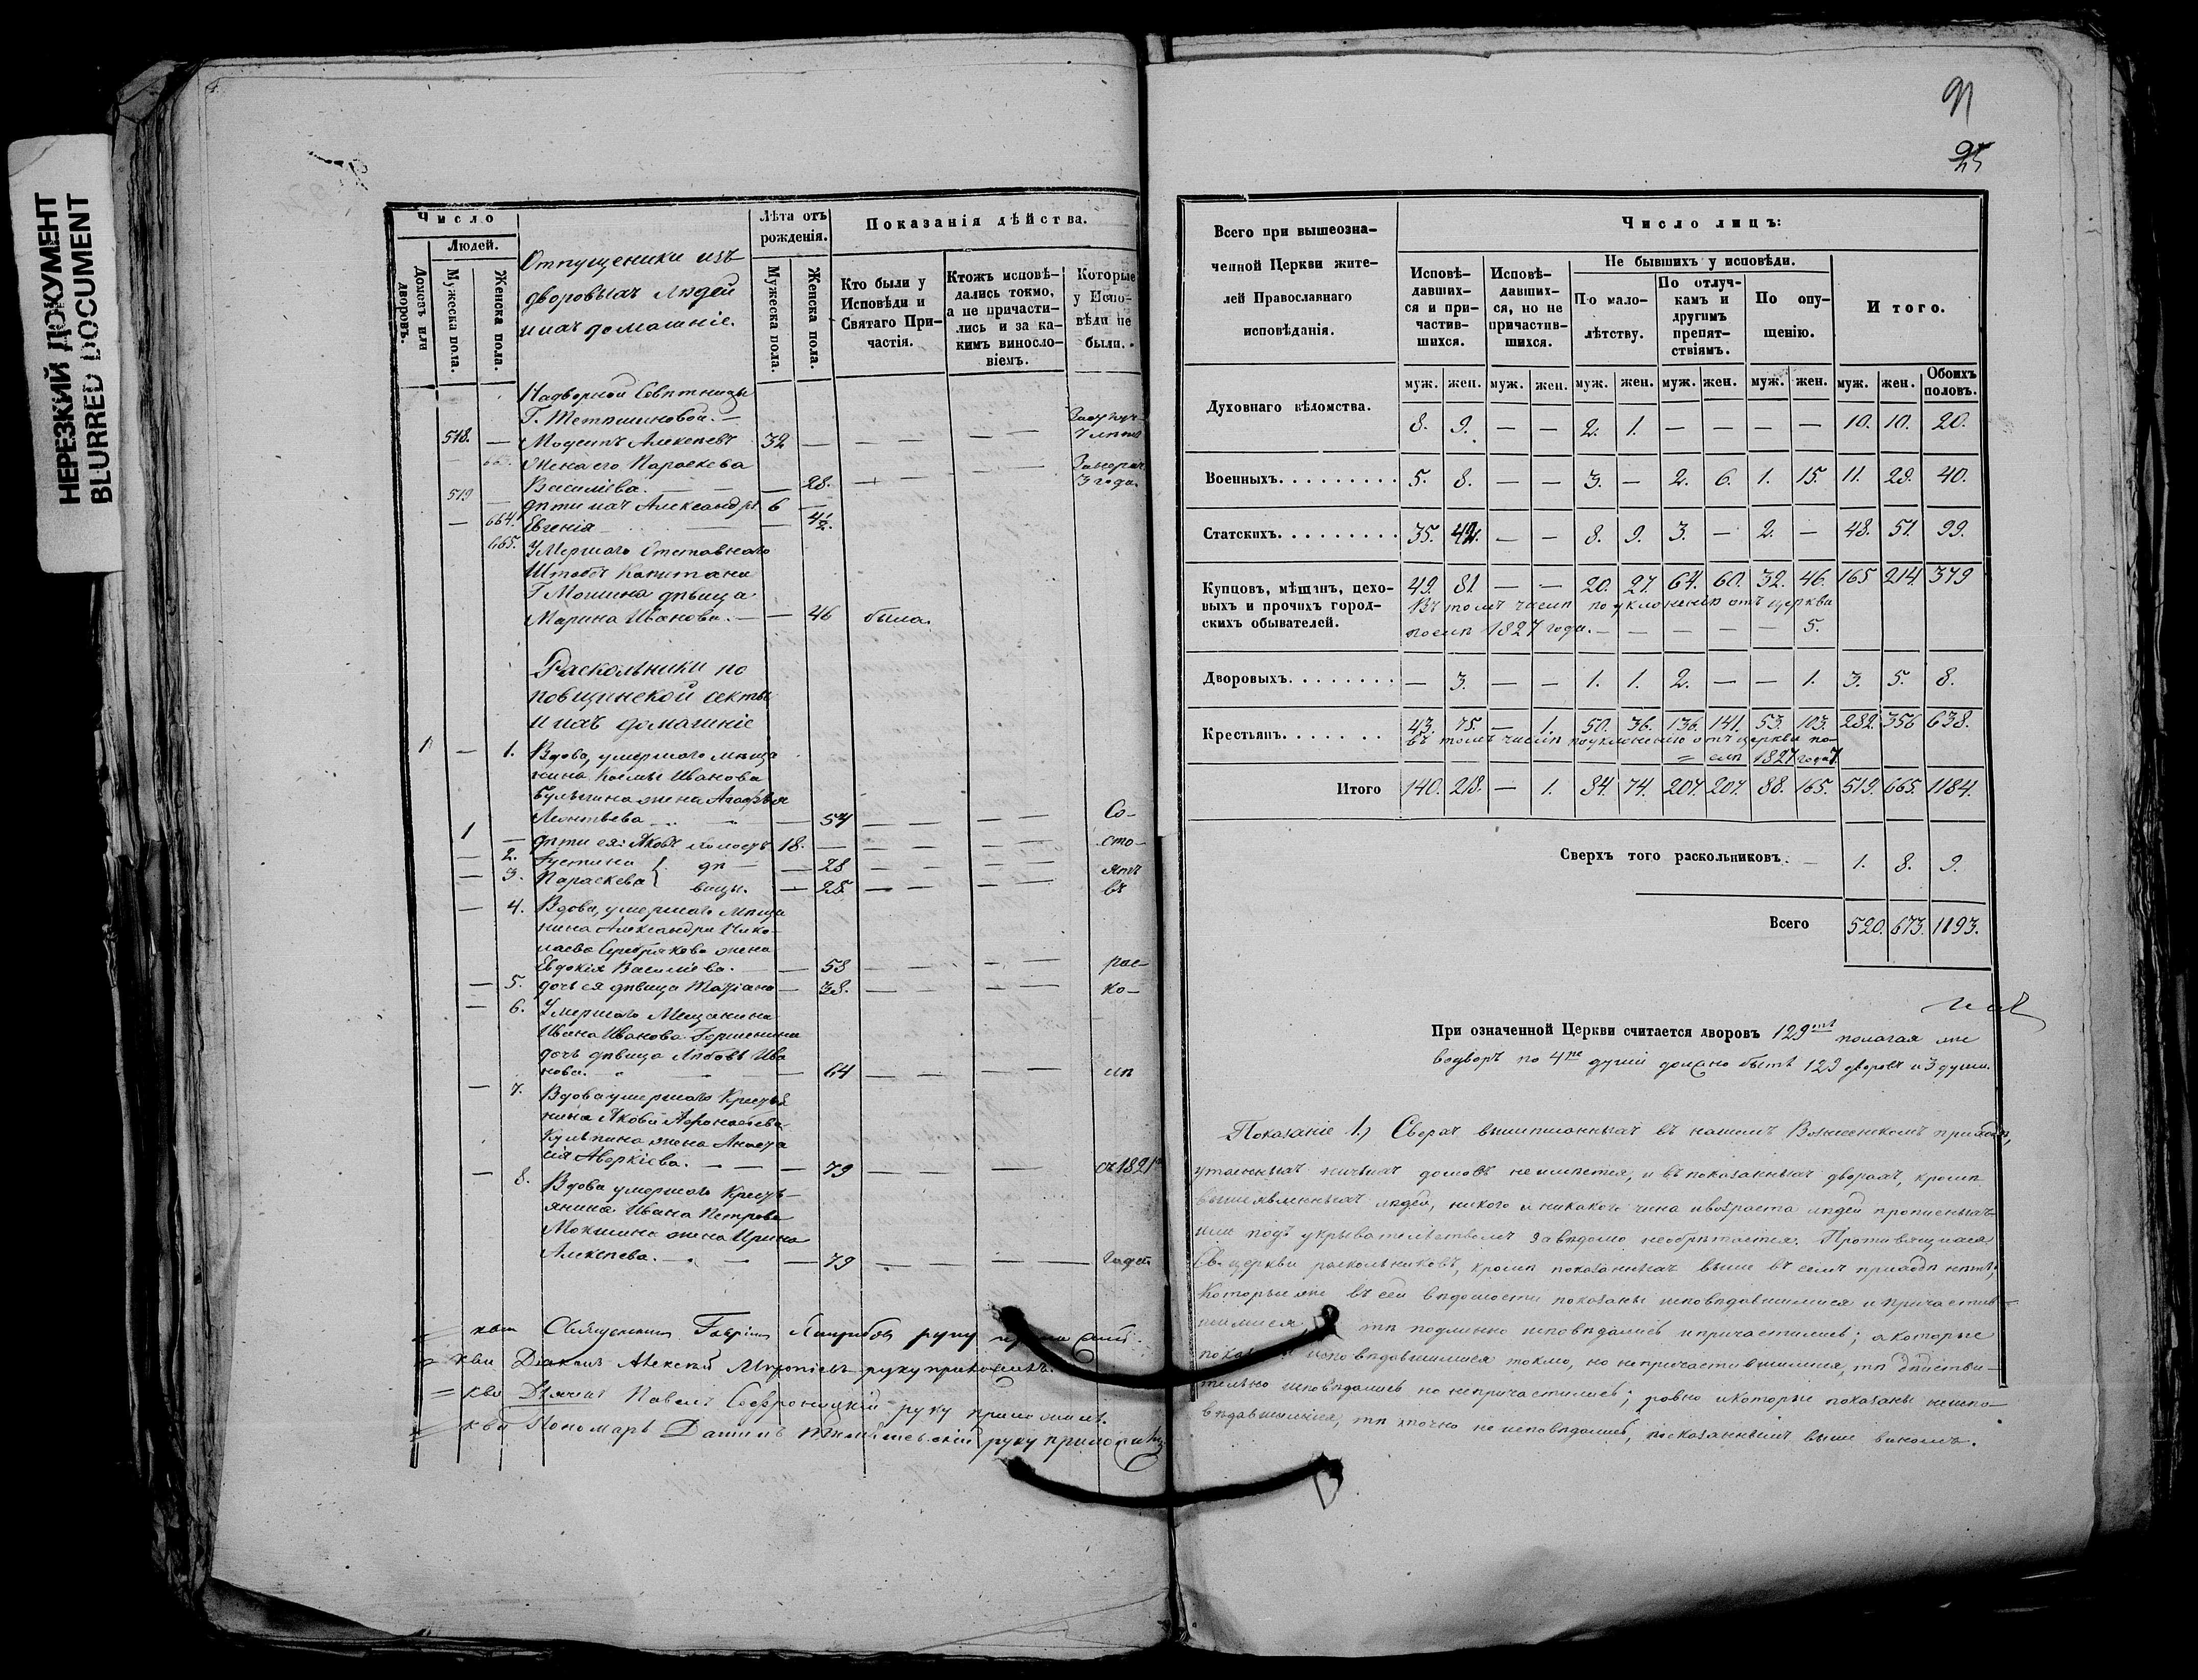 НЕРЕЗКИЙ ДОКУМЕНТ
BLURRED DOCUMENT
Число
Домовъ или дворовъ.
Людей.
Мужеска пола.
Женска пола.
Отпущеники изъ
дворовыхъ людей
и ихъ домашніе.
Лѣта отъ рожденія.
Мужеска пола.
Женска пола.
Показанія дѣйства.
Кто были у Исповѣди и Святаго Причастія.
Ктожъ исповѣдались токмо, а не причастились и за какимъ винословіемъ.
Которые у Исповѣди не были.
Надворной Совѣтницы
Г.
518. — Моусипъ Алексѣевъ 32 — — — —
Жена его Параскева
Василіева. — — — 28. — — — 3 года.
519 — дѣти ихъ Александръ 6 —
— 664. Евгенія — — 4½.
665. Умершаго Отставнаго
Штабсъ Капитана
Г Мошина дѣвица
Марина Иванова. — — 46 была.
Раскольники по
повщинской секты
и ихъ домашніе
1 — 1. Вдова, умершаго мѣща
нина Косьмы Иванова
Булыгина жена Агафья
Леонтьева — — — 54 — — — — Со-
1 — дѣти ея: Яковъ холостъ 18. — — — — — сто-
— 2. Іустина } дѣ — — 28 — — — ятъ
— 3. Параскева } вицы. — 25. — — — — въ
— 4. Вдова, умершаго мѣща
нина Александра Нико-
лаева Серебрякова жена
Евдокія Василіева. — — 58 — — — — рас-
— 5. дочь ея дѣвица Татіана — 38. — — — — ко-
— 6. Умершаго Мещанина
Ивана Иванова
дочь дѣвица Любовь Ива
нова. — — — 64 — — — — лѣ
— 7. Вдова умершаго Крестья
нина Якова Афонасьева
Кульпина жена Анаста
сія Аверкіева. — — — 79 — — — съ 1821
— 8. Вдова умершаго Кресть-
янина Ивана Петрова
Мокшина жена Ирина
Алексѣева. — — — 79 — — — — года
Священникъ Гавріилъ руку приложилъ.
Діаконъ Алексѣй руку приложилъ.
Дьячекъ Павелъ Софроницкій руку приложилъ.
Пономарь Даніилъ руку приложилъ
91
25
Всего при вышеозначенной Церкви жителей Православнаго исповѣданія.
Число лицъ:
Исповѣдавшихся и причастившихся.
Исповѣдавшихся, но не причастившихся.
Не бывшихъ у исповѣди.
По малолѣтству.
По отлучкамъ и другимъ препятствіямъ.
По опущенію.
Итого.
муж. жен. муж. жен. муж. жен. муж. жен. муж. жен. муж. жен. Обоихъ половъ.
Духовнаго вѣдомства. 8. 9. — — 2. 1. — — — — 10. 10. 20.
Военныхъ. 5. 8. — — 3. — 2. 6. 1. 15. 11. 29. 40.
Статскихъ. 35. 42. — — 8. 9. 3. — 2. — 48. 51. 99.
Купцовъ, мѣщанъ, цеховыхъ и прочихъ городскихъ обывателей. 49. 81. — — 20. 27. 64. 60. 32. 46. 165 214. 379
Въ томъ числѣ по уклоненію отъ церкви
послѣ 1827 года. — — — — — 5.
Дворовыхъ. — 3. — — 1. 1. 2. — — 1. 3. 5. 8.
Крестьянъ. 43. 75. — 1. 50. 36. 136. 141. 53. 103. 282. 356 638.
въ томъ числѣ по уклоненію отъ церкви по-
слѣ 1827 года 7.
Итого 140. 218. — 1. 84. 74. 207. 207. 88. 165. 519. 665. 1184.
Сверхъ того раскольниковъ. — 1. 8. 9.
Всего 520. 673. 1193.
При означенной Церкви считается дворовъ 129 полагая же
во дворъ по 4 души должно быть 129 дворовъ и 3 души.
Показаніе 1.) Сверхъ вышеписанныхъ въ нашемъ Вознесенскомъ приходѣ,
утаенныхъ ничьихъ домовъ не имѣется, и въ показанныхъ дворахъ, кромѣ
вышеявленныхъ людей, никого и никакого чина и возраста людей прописныхъ
или подъ укрывательствомъ завѣдомо необрѣтается. Противящихся
Св. церкви раскольниковъ, кромѣ показанныхъ выше въ семъ приходѣ нѣтъ;
Которые же въ сей вѣдомости показаны исповѣдавшимися и причастив-
шимися, тѣ подлинно исповѣдались и причастились; а которые
показаны исповѣдавшимися токмо, но непричастившимися, тѣ дѣйстви-
тельно исповѣдались но непричастились; равно и которые показаны неиспо-
вѣдавшимися, тѣ точно не исповѣдались, по сказаннымъ выше винамъ.